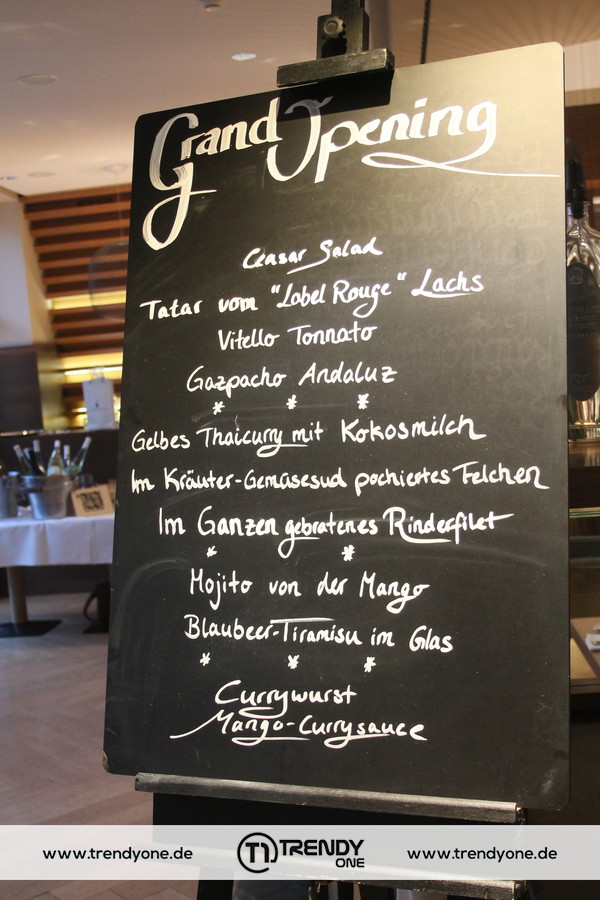 Grand Opening
Ceasar Salad
Tatar vom "Label Rouge" Lachs
Vitello Tonnato
Gazpacho Andaluz
* * *
Gelbes Thaicurry mit Kokosmilch
Im Kräuter-Gemüsesud pochiertes Felchen
Im Ganzen gebratenes Rinderfilet
* *
Mojito von der Mango
Blaubeer-Tiramisu im Glas
* * *
Currywurst
Mango-Currysauce
www.trendyone.de TRENDY ONE www.trendyone.de